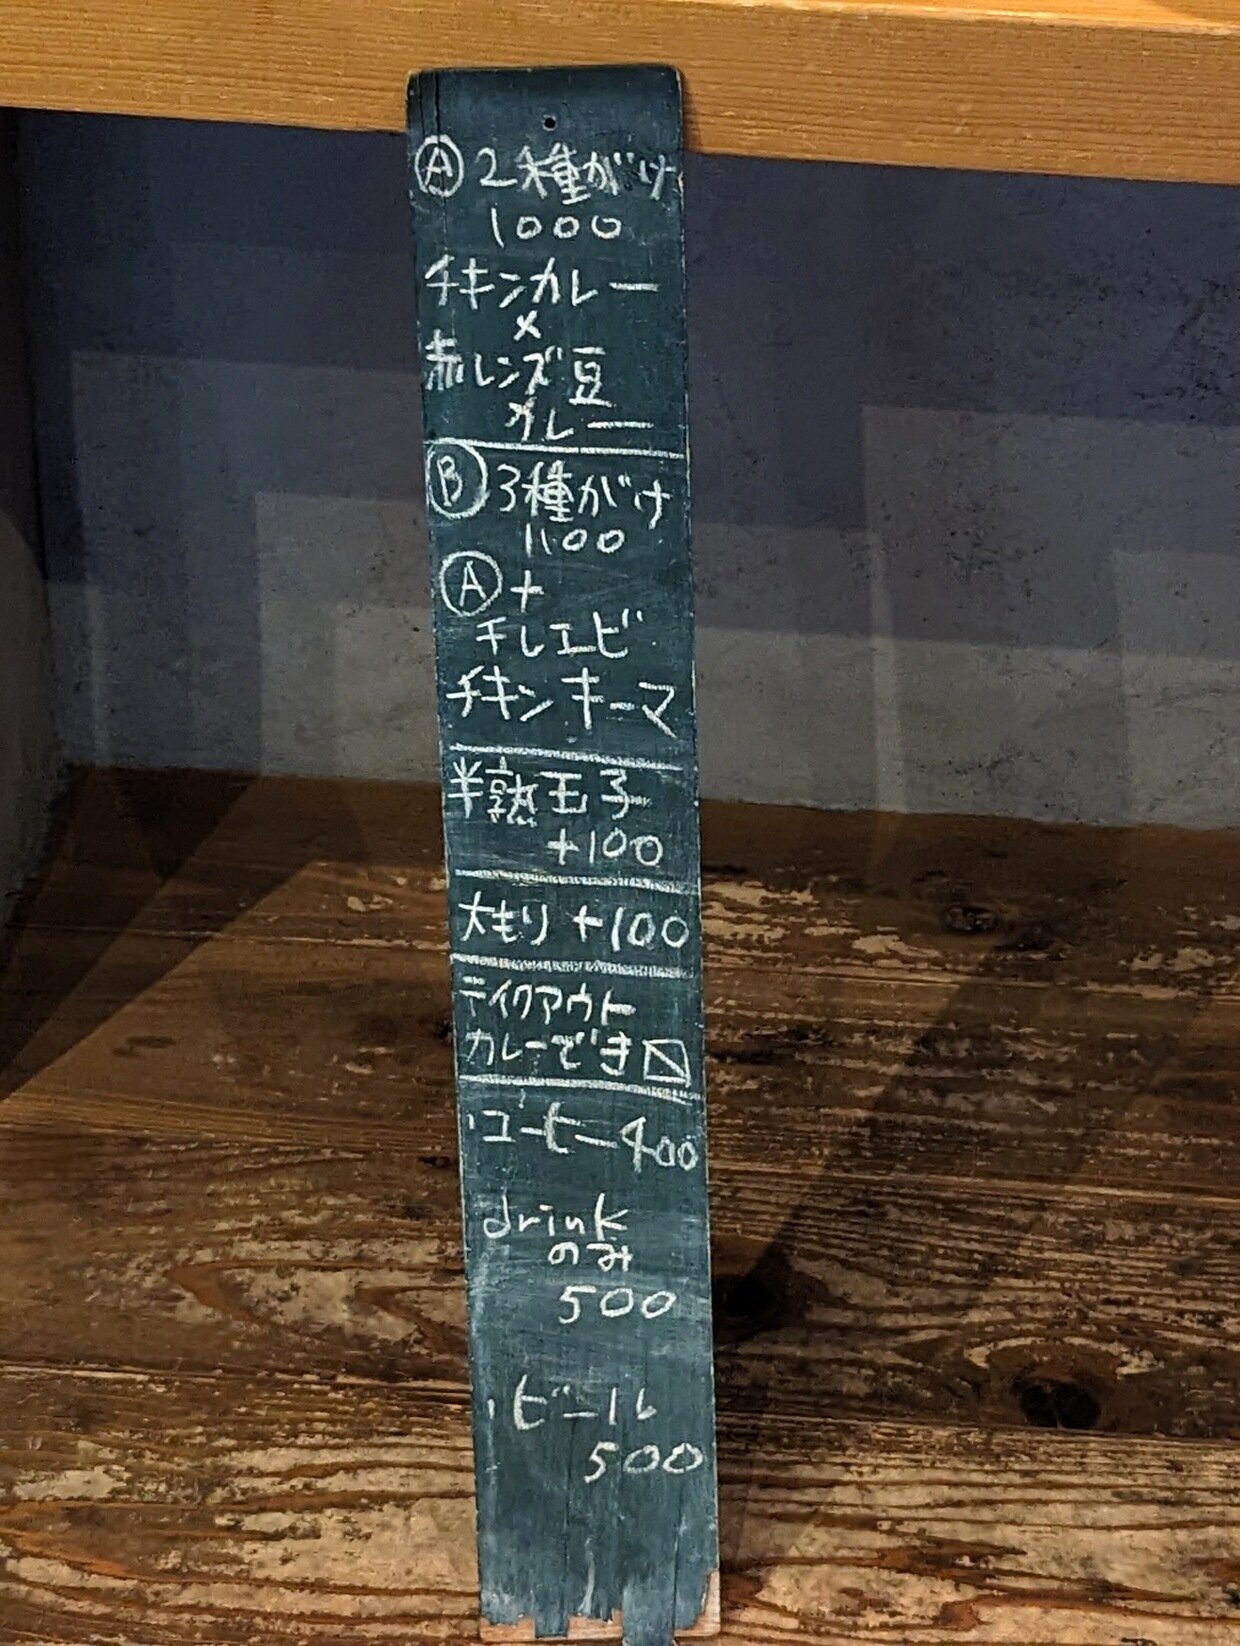 Ⓐ 2種がけ
1000
チキンカレー
×
赤レンズ豆
カレー
Ⓑ 3種がけ
1100
Ⓐ+
チレエビ
チキンキーマ
半熟玉子
+100
大もり +100
テイクアウト
カレーでき〼
・コーヒー400
drink
のみ
500
・ビール
500